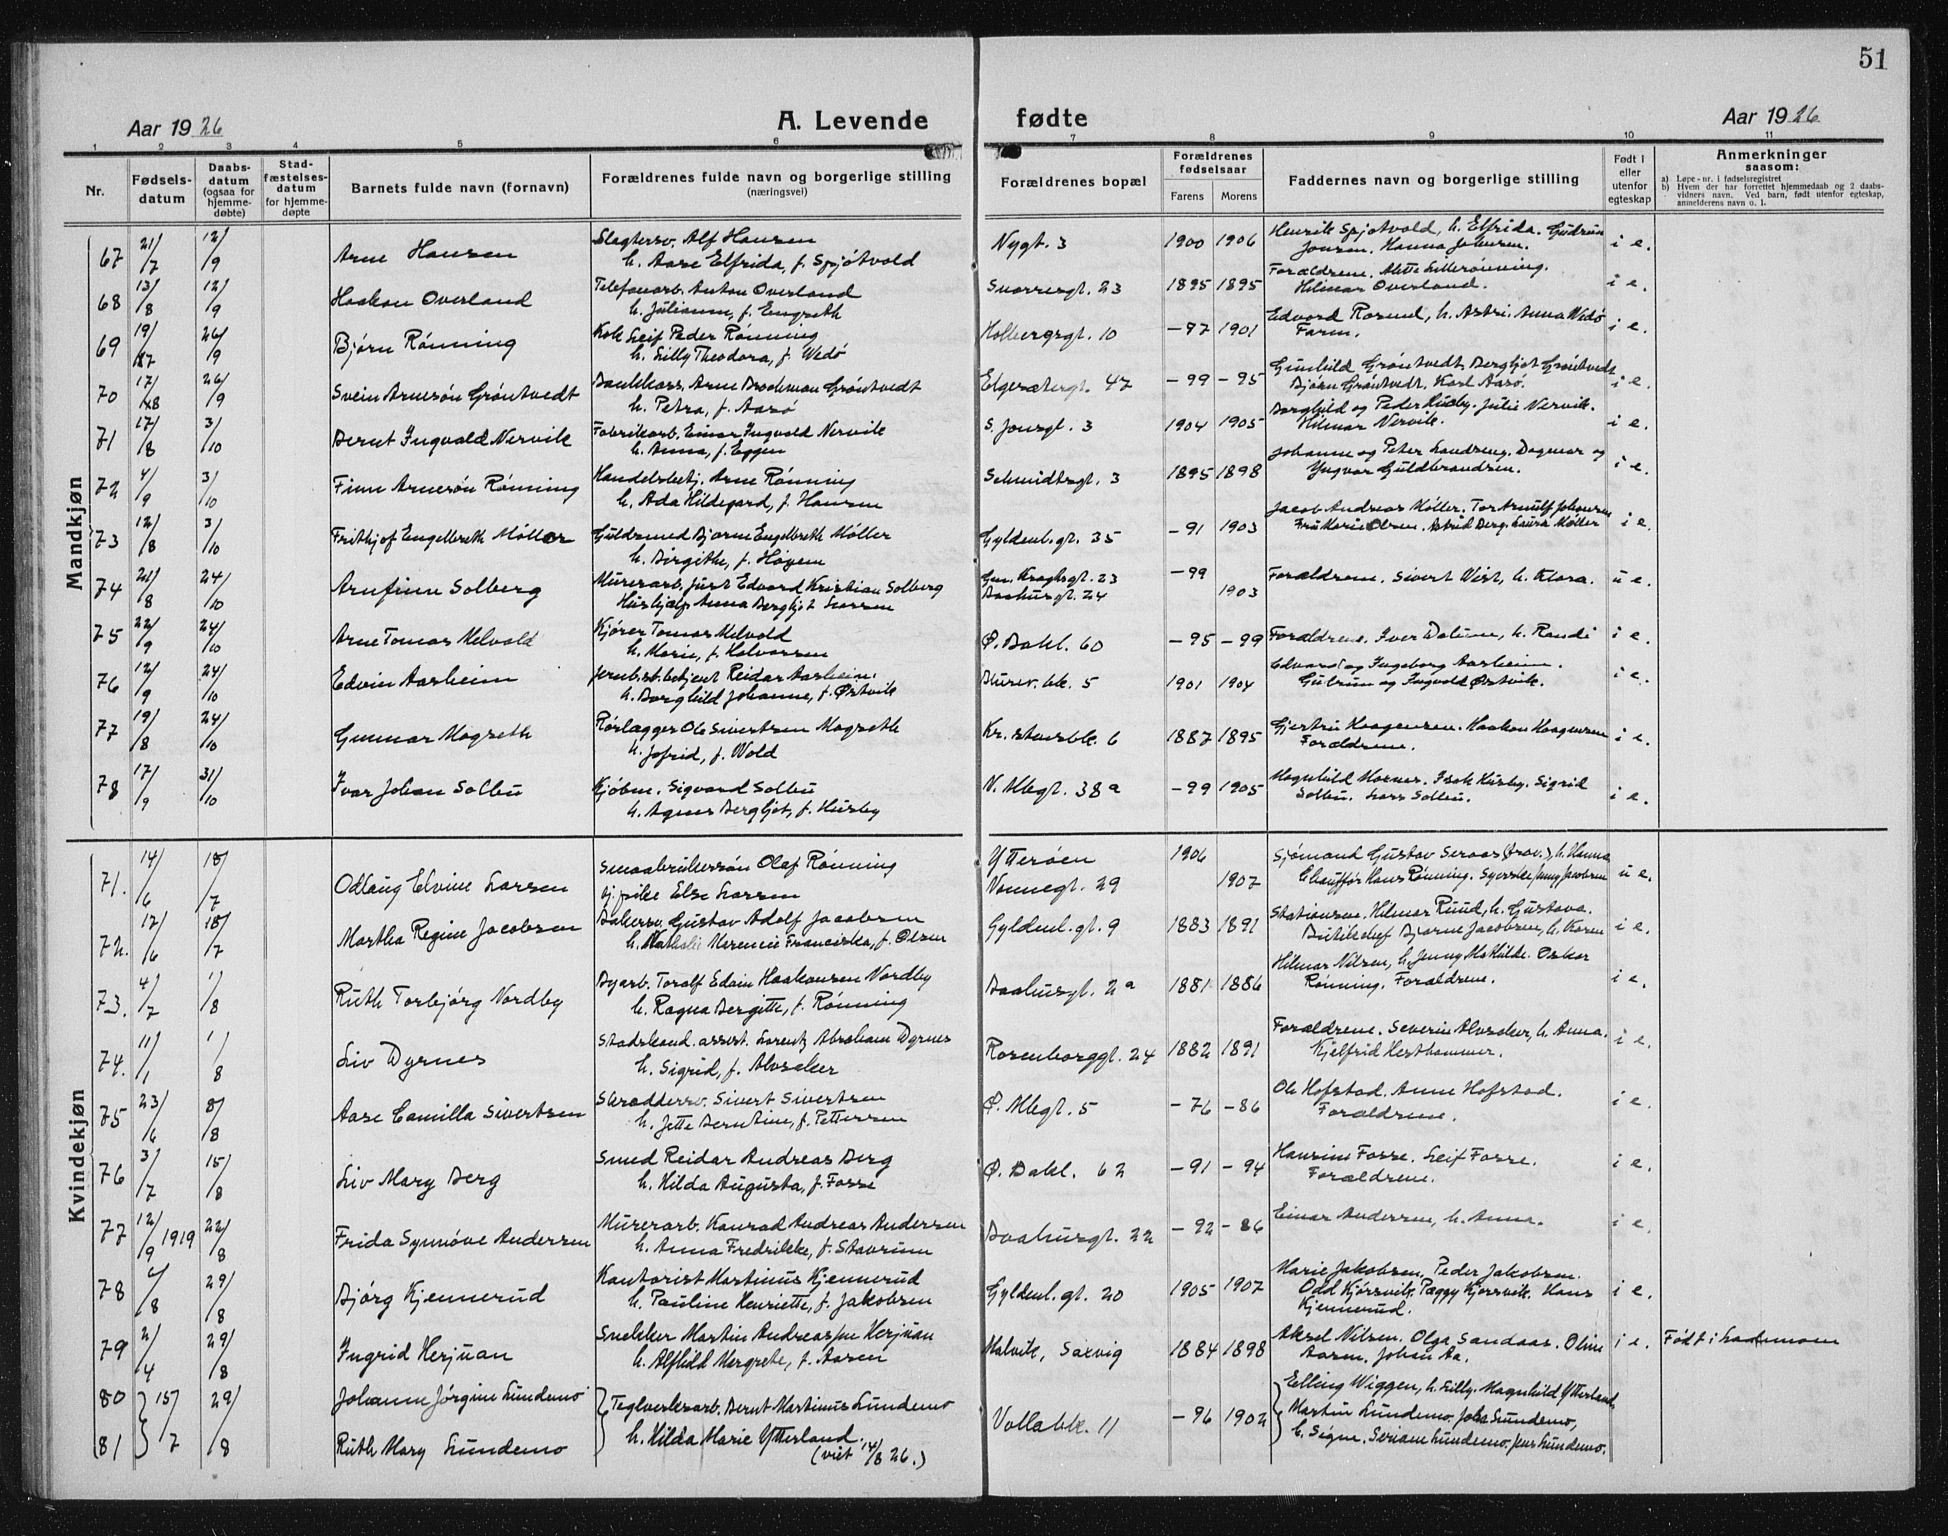 51
Aar 1926 A. Levende fødte Aar 1926
1 2 3 4 5 6 7 8 9 10 11
Nr.
Fødsels-
datum
Daabs-
datum
(ogsaa for
hjemme-
døbte)
Stad-
fæstelses-
datum
for hjemme-
døpte
Barnets fulde navn (fornavn)
Forældrenes fulde navn og borgerlige stilling
(næringsvei)
Forældrenes bopæl
Forældrenes
fødselsaar
Farens Morens
Faddernes navn og borgerlige stilling
Født i
eller
utenfor
egteskap
Anmerkninger
saasom:
a) Løpe-nr. i fødselsregistret
b) Hvem der har forrettet hjemmedaab og 2 daabs-
vidners navn. Ved barn, født utenfor egteskap,
anmelderens navn o. l.
Mandkjøn
67 21/7 12/9 Arne Hansen Slagtersv. Alf Hansen Nygt. 3 1900 1906 Henrik Spjøtvold, h. Elfrida. Gudrun i e.
h. Aase Elfrida, f. Spjøtvold Jonsen. Hanna Johnsen.
68 13/8 12/9 Haakon Overland Telefonarb. Anton Overland Sverresgt. 23 1895 1895 Forældrene. Mette Lillerønning. i e.
h. Julianne, f. Engseth Hilmar Overland.
69 19/7 26/9 Bjørn Rønning Kok Leif Peder Rønning Holbergsgt. 10 -97 1901 Edvard Rosmel, h. Astri. Anna Wedø i e.
h. Lilly Theodora, f. Wedø Faren.
70 17/8 26/9 Svein Arnesøn Grøntvedt Bankkass. Arne Brockman Grøntvedt Elgesætergt. 47 -99 -95 Gunhild Grøntvedt, Bergljot Grøntvedt i e.
h. Petra, f. Aasø Bjørn Grøntvedt, Karl Aasø.
71 17/8 3/10 Bernt Ingvald Nervik Fabrikarb. Einar Ingvald Nervik S. Jonsgt. 3 1904 1905 Borghild og Peder Husby. Julie Nervik. i e.
h. Anna, f. Eggen Hilmar Nervik.
72 4/9 3/10 Finn Arnesøn Rønning Handelsbetj. Arne Rønning Schmidtsgt. 3 1895 1898 Johanne og Peter Landseng. Dagmar og i e.
h. Ada Hildegard, f. Hansen Yngvar Guldbrandsen.
73 12/8 3/10 Frithjof Engelbreth Møller Guldsmed Bjarne Engelbreth Møller Gyldenl. gt. 35 -91 1903 Jacob Andreas Møller. Tor Arnulf Johansen i e.
h. Birgithe, f. Høyem Fru Marie Olsen. Astrid Berg. Laura Møller
74 21/8 24/10 Arnfinn Solberg Murerarb. Just Edvard Kristian Solberg Gen. Kroghsgt. 23 -99 Forældrene. Sivert Vist, h. Klara. u e.
Hushjælp Anna Bergljot Larsen Baahusgt. 24 1903
75 22/9 24/10 Arne Tomas Melvold Kjører Tomas Melvold Ø. Bakl. 60 -95 -99 Forældrene. Iver Dalum, h. Randi i e.
h. Marie, f. Halvorsen
76 12/9 24/10 Edvin Aasheim Jernb.st.betjent Reidar Aasheim. 5 1901 1904 Edvard og Ingeborg Aasheim. i e.
h. Borghild Johanne, f. Østvik Gudrun og Ingvald Østvik.
77 19/8 24/10 Gunnar Mogseth Rørlægger Ole Sivertsen Mogseth Kr.stensbk. 6 1887 1895 Gjertru Haagensen. Haakon Haagensen i e.
h. Jofrid, f. Wold Forældrene.
78 17/9 31/10 Ivar Johan Solbu Kjøbm. Sigvard Solbu N. Mbgt. 38a -99 1905 Magnhild Morner. Isak Husby. Sigrid i e.
h. Agnes Bergljot, f. Husby Solbu. Lars Solbu.
Kvindekjøn
71. 14/6 18/7 Odlaug Elvine Larsen Smaabrukersøn Olaf Rønning Ytterøen 1906 Sjømand Gustav Seraas (frav.), h. Hanna u e.
tj.pike Else Larsen Vonnegt. 29 1907 Chauffør Hans Rønning. Syerske Jenny Jacobsen
72. 12/6 18/7 Martha Regine Jacobsen Bakersv. Gustav Adolf Jacobsen Gyldenl. gt. 9 1883 1891 Stationsm. Hilmar Ruud, h. Gustava. i e.
h. Nathalie Marencie Franciska, f. Olsen Butikchef Bjarne Jacobsen, h. Karen
73. 4/7 1/8 Ruth Torbjørg Nordby Byarb. Toralf Edvin Haakonsen Nordby Baahusgt. 2a 1881 1886 Hilmar Nilsen, h. Jenny Mathilde. Oskar i e.
h. Ragna Bergitte, f. Rønning Rønning. Forældrene.
74. 11/1 1/8 Liv Dyrnes Stadskond. assist. Lorentz Abraham Dyrnes Rosenborggt. 24 1882 1891 Forældrene. Severin Alvsaker, h. Anna. i e.
h. Sigrid, f. Alvsaker Kjelfrid Hesthammer.
75 23/6 8/8 Aase Camilla Sivertsen Skræddersv. Sivert Sivertsen Ø. Mbgt. 5 -76 -86 Ole Hofstad. Anne Hofstad. i e.
h. Jette Berntine, f. Pettersen Forældrene.
76 3/7 15/8 Liv Mary Berg Smed Reidar Andreas Berg Ø. Bakl. 62 -91 -94 Hansine Fosse. Leif Fosse. i e.
h. Hilda Augusta, f. Fosse Forældrene.
77 12/9 1919 22/8 Frida Synnøve Andersen Murerarb. Konrad Andreas Andersen Baahusgt. 22 -92 -86 Einar Andersen, h. Anna. i e.
h. Anna Fredrikke, f. Stavrum
78 6/8 29/8 Bjørg Kjennerud Kontorist Martinus Kjennerud Gyldenl. gt. 20 1905 1907 Marie Jakobsen, Peder Jakobsen. i e.
h. Pauline Henriette, f. Jakobsen Odd Kjørsvik. Peggy Kjørsvik. Hans
Kjennerud.
79 2/4 29/8 Ingrid Herjuan Snekker Martin Andreas Herjuan Malvik, Saxvig 1884 1898 Aksel Nilsen. Olga Sandaas. Oline i e. Født i
h. Alfhild Margrete, f. Aasen Aasen. Johan Aa.
80 15/7 29/8 Johanne Jørgine Lundemo Teglverksarb. Bernt Martinus Lundemo Vollabk. 11 -96 1902 Elling Wiggen, h. Lilly. Magnhild Ytterland,
81 Ruth Mary Lundemo h. Hilda Marie Ytterland. Martin Lundemo, Lundemo,
(viet 14/8 26.) h. Signe. Lundemo. Jens Lundemo.